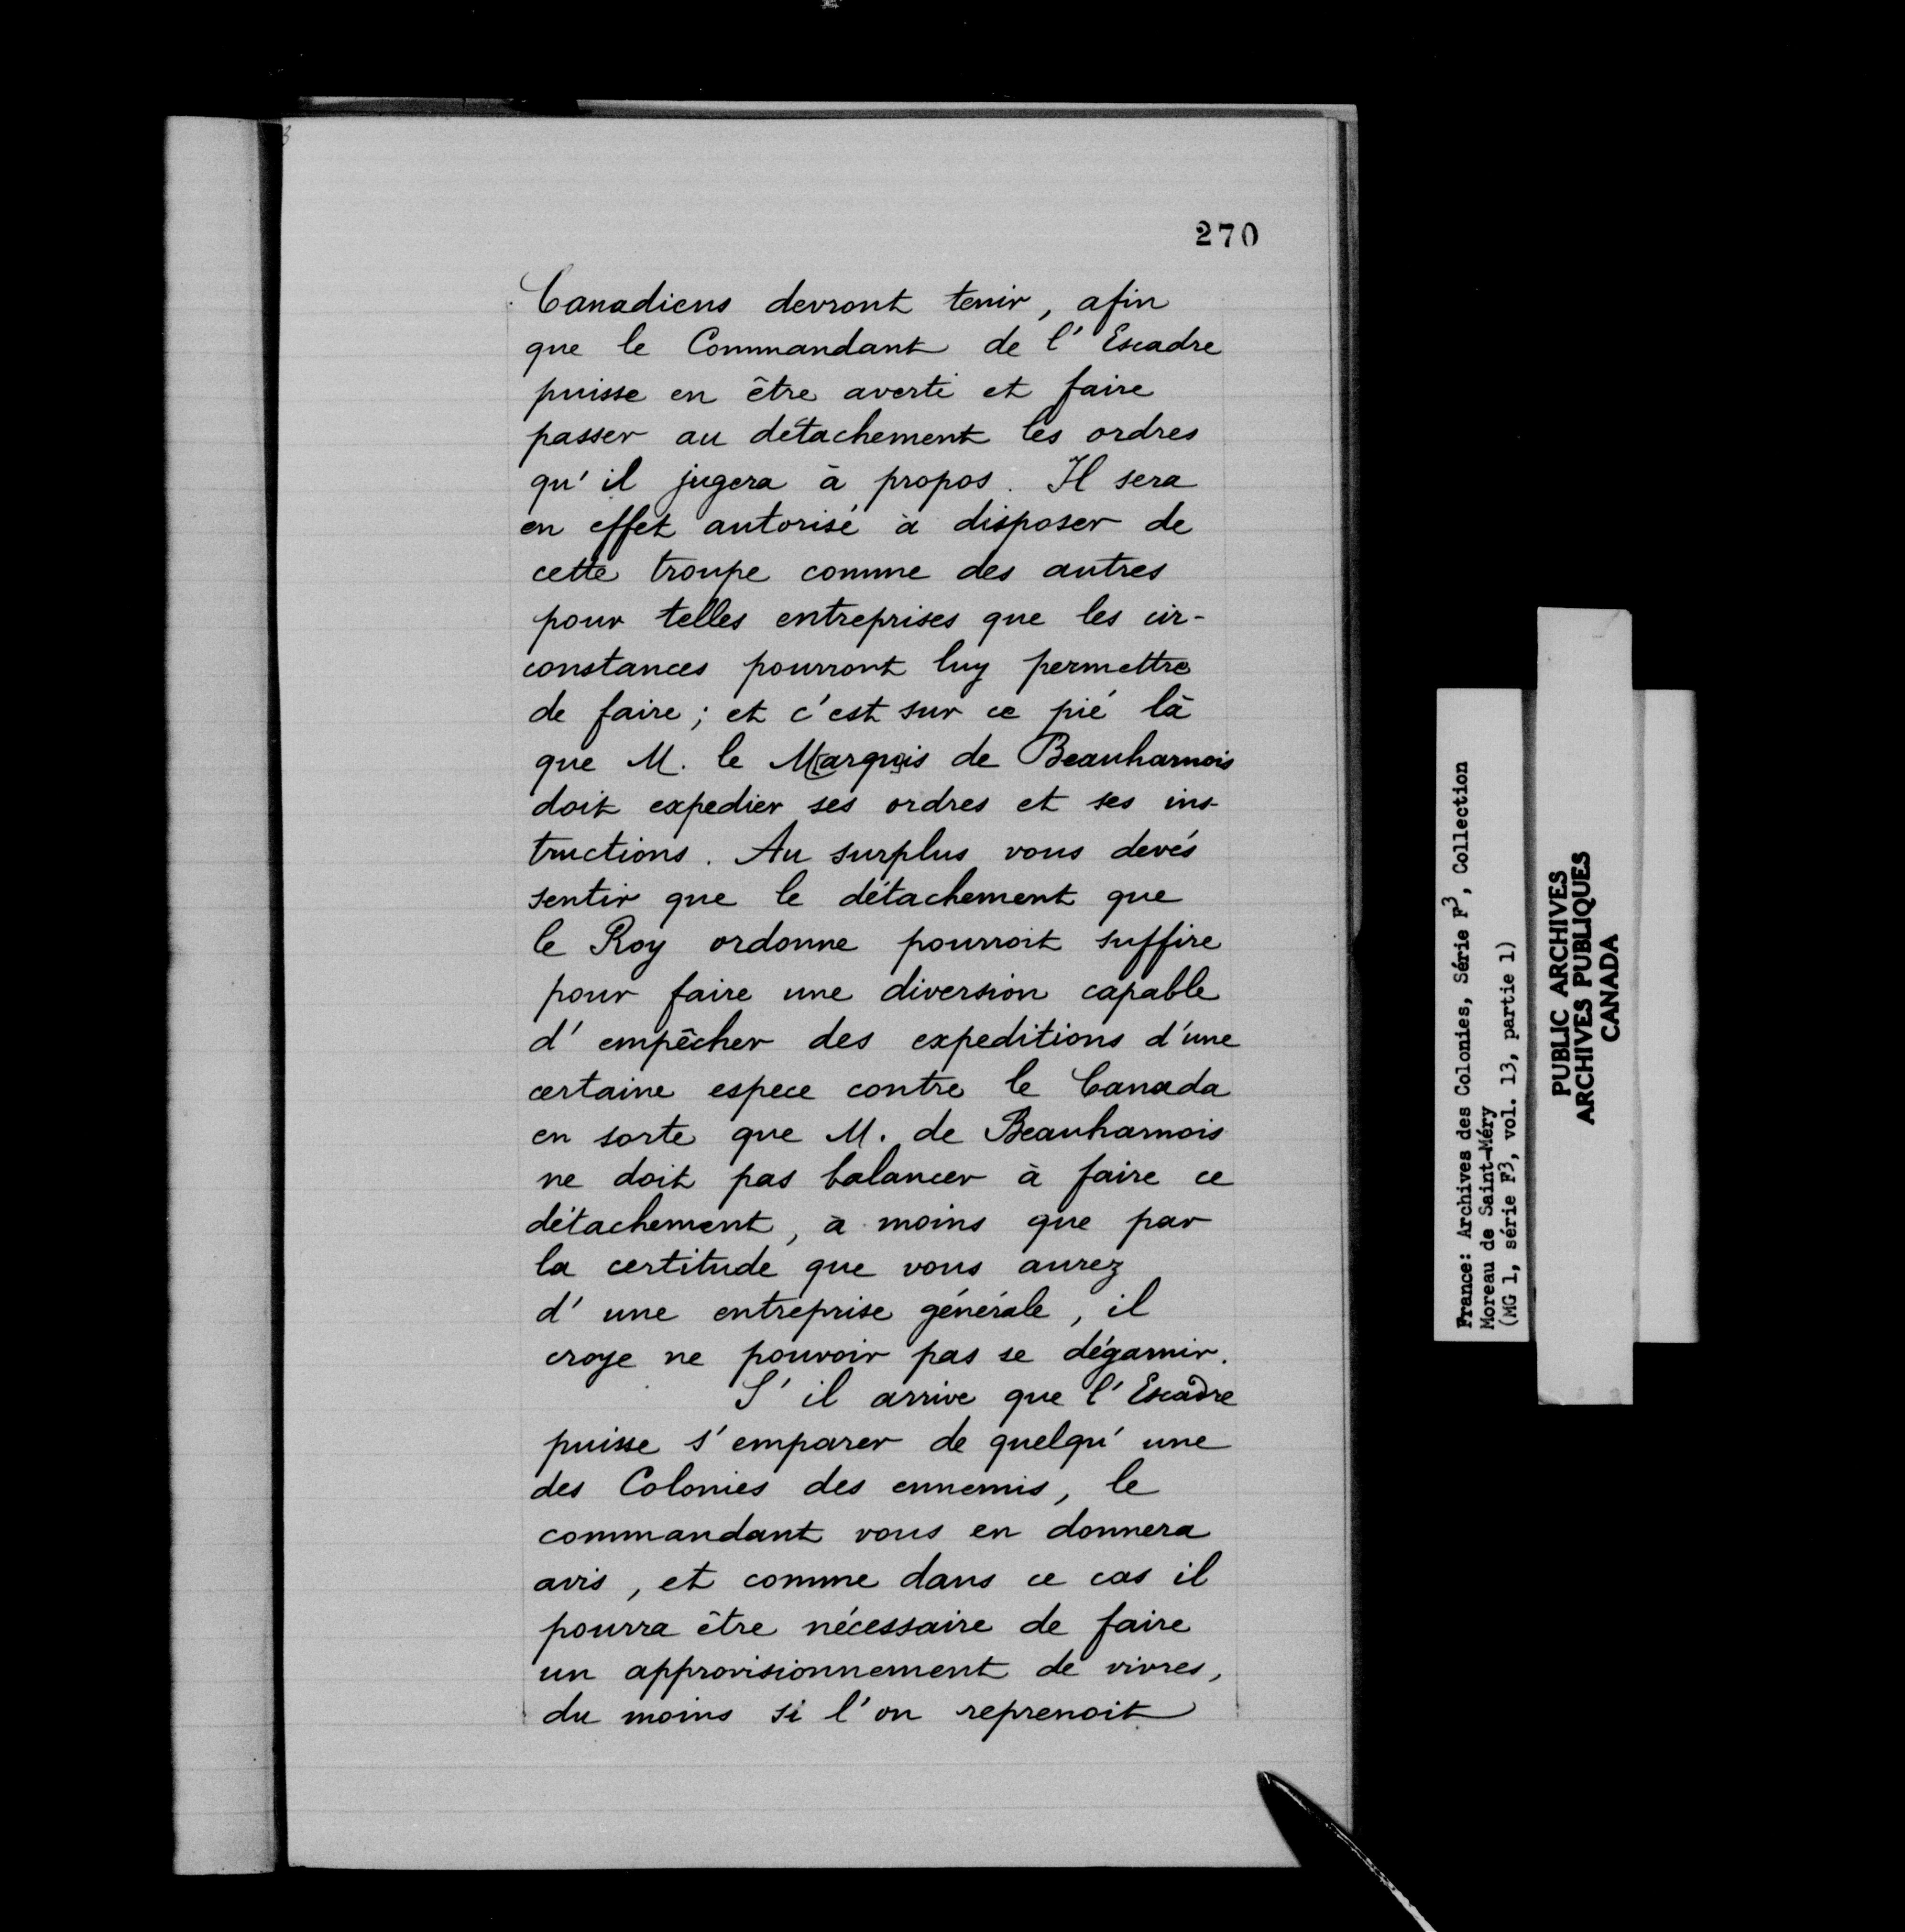 270
Canadiens devront tenir, afin
que le Commandant de l'Escadre
puisse en être averti et faire
passer au détachement les ordres
qu'il jugera à propos. Il sera
en effet autorisé à disposer de
cette troupe comme des autres
pour telles entreprises que les cir-
constances pourront luy permettre
de faire; et c'est sur ce pié là
que M. le M[arqu]is de Beauharnois
doit expedier ses ordres et ses ins-
tructions. Au surplus vous devés
sentir que le détachement que
le Roy ordonne pourroit suffire
pour faire une diversion capable
d'empêcher des expeditions d'une
certaine espece contre le Canada
en sorte que M. de Beauharnois
ne doit pas balancer à faire ce
détachement, à moins que par
la certitude que vous aurez
d'une entreprise générale, il
croye ne pouvoir pas se dégarnir.
S'il arrive que l'Escadre
puisse s'emparer de quelqu'une
des Colonies des ennemis, le
commandant vous en donnera
avis, et comme dans ce cas il
pourra être nécessaire de faire
un approvisionnement de vivres,
du moins si l'on reprenoit
France: Archives des Colonies, Série F3, Collection
Moreau de Saint-Méry
(MG 1, série F3, vol. 13, partie 1)
PUBLIC ARCHIVES
ARCHIVES PUBLIQUES
CANADA